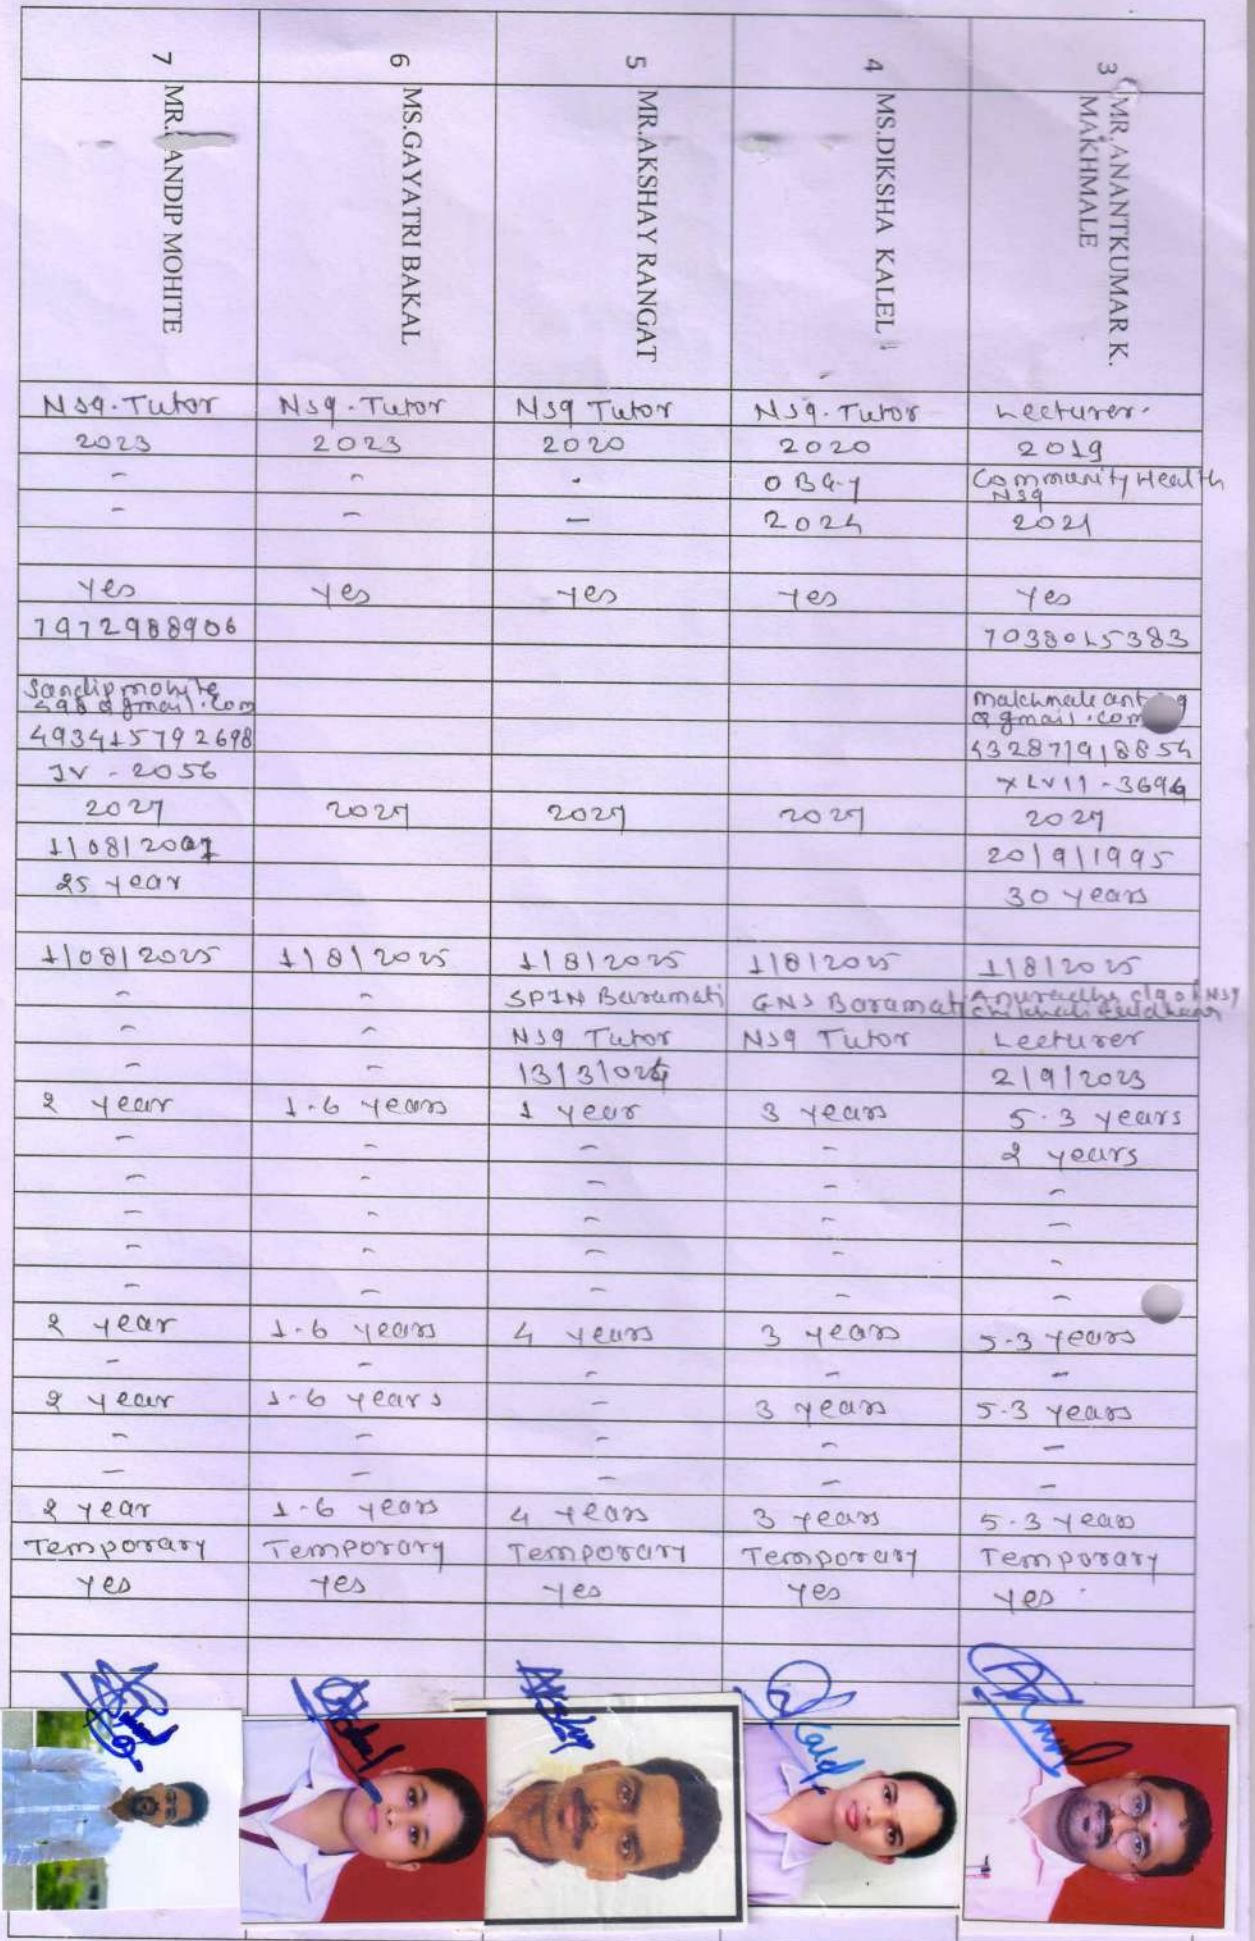 7 MR. ANDIP MOHITE
6 MS.GAYATRI BAKAL
5 MR.AKSHAY RANGAT
4 MS.DIKSHA KALEL
3 MR.ANANTKUMAR K.
MAKHMALE
Nsg.Tutor Nsg.Tutor Nsg Tutor Nsg.Tutor Lecturer.
2023 2023 2020 2020 2019
- - - OBGY Community Health
Nsg
- - - 2024 2021
yes yes yes yes yes
7972988906 7038015383
Sandipmohite
498@gmail.com
@gmail.com
493415792698 432871918854
IV - 2056 XLVII - 3694
2027 2027 2027 2027 2027
1/08/2001 20/9/1995
25 year 30 years
1/08/2025 1/8/2025 1/8/2025 1/8/2025 1/8/2025
- - SPIN Baramati GNS Baramati Anuradha clg of Nsg
- - Nsg Tutor Nsg Tutor Lecturer
- - 13/3/024 2/9/2023
2 year 1-6 years 1 year 3 years 5.3 years
- - - - 2 years
- - - - -
- - - - -
- - - - -
- - - - -
2 year 1-6 years 4 years 3 years 5-3 years
- - - - -
2 year 1-6 years - 3 years 5-3 years
- - - - -
- - - - -
2 year 1-6 years 4 years 3 years 5-3 years
Temporary Temporary Temporary Temporary Temporary
yes yes yes yes yes